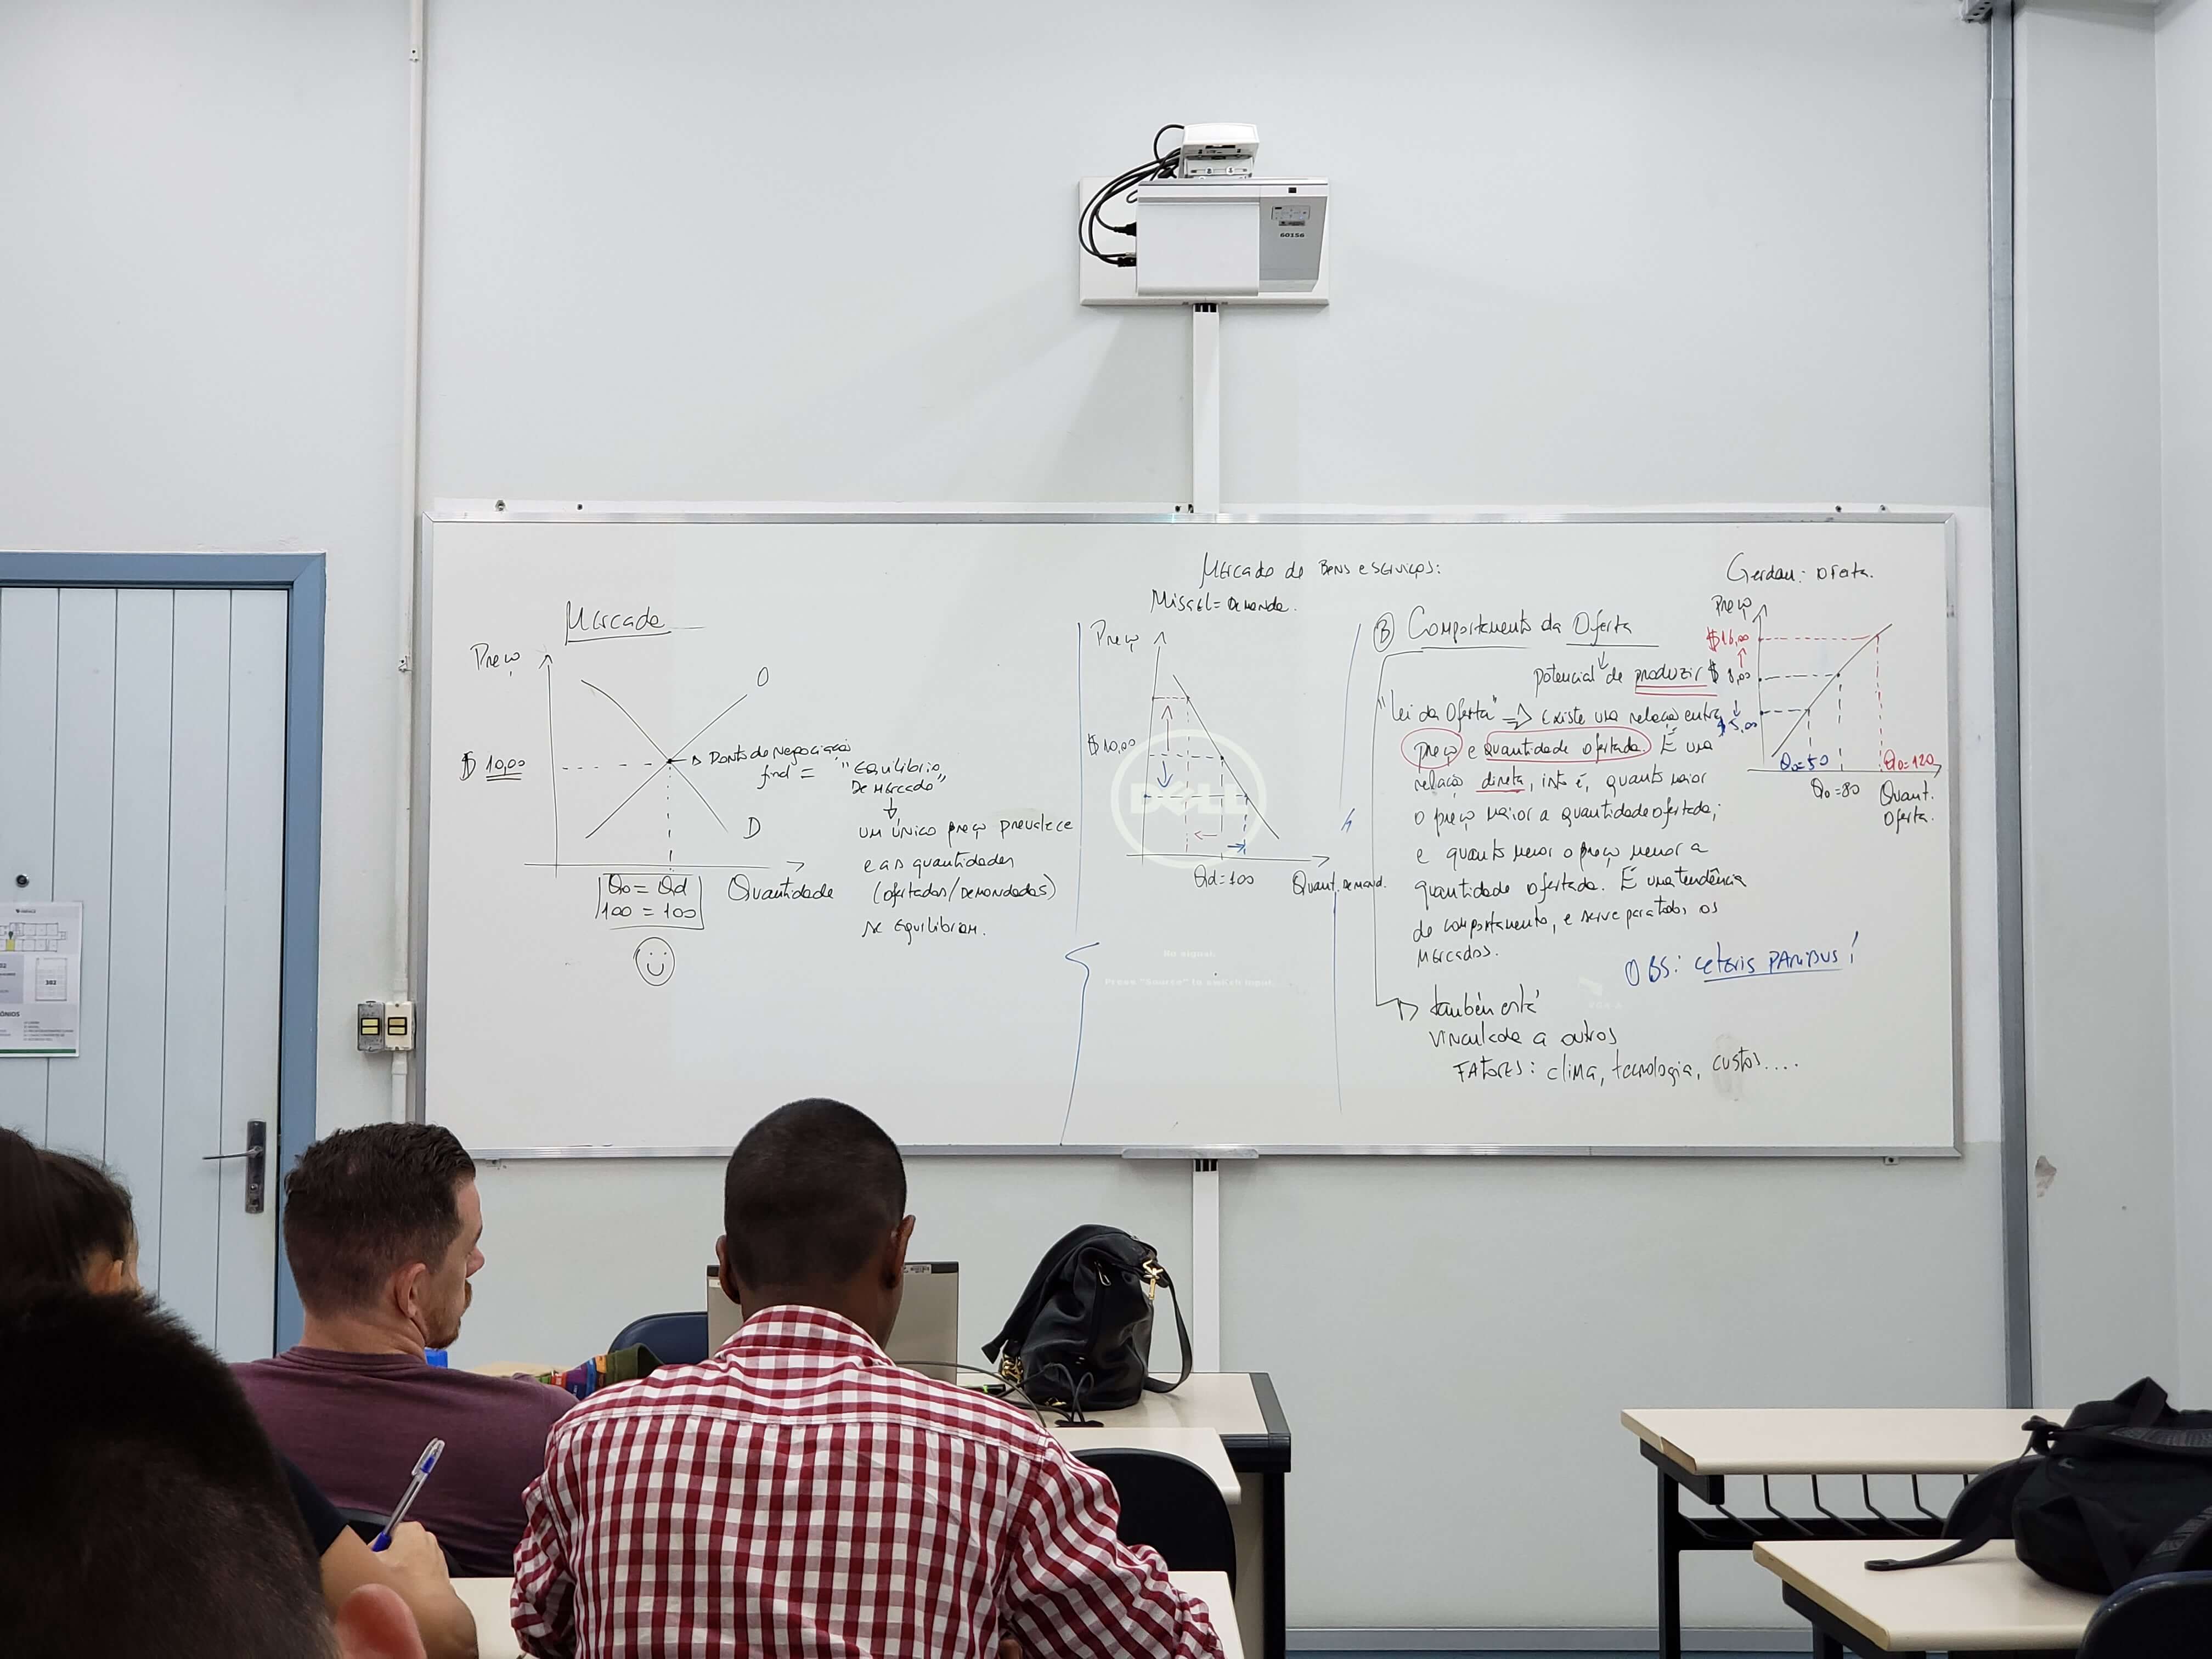 60156
Mercado
Preço
O
$ 10,00
Ponto de Negociação
final = "Equilíbrio
De Mercado"
um único preço prevalece
e as quantidades
(ofertadas/Demandadas)
se Equilibram.
D
Qo = Qd
100 = 100
Quantidade
Mercado de Bens e serviços:
Misael = Demanda.
Preço
$ 10,00
DELL
Qd = 100
Quant. Demand.
No signal.
Press "Source" to switch input.
B Comportamento da Oferta
potencial de produzir
"lei da Oferta" => Existe uma relação entre
preço e quantidade ofertada. É uma
relação direta, isto é, quanto maior
o preço maior a quantidade ofertada;
e quanto menor o preço menor a
quantidade ofertada. É uma tendência
de comportamento, e serve para todos os
mercados.
OBS: ceteris PARIBUS!
também está
vinculada a outros
FATORES: clima, tecnologia, custos....
Gerdau: oferta.
Preço
$ 16,00
$ 8,00
$ 5,00
Qo = 50
Qo = 120
Qo = 80
Quant.
Oferta.
302